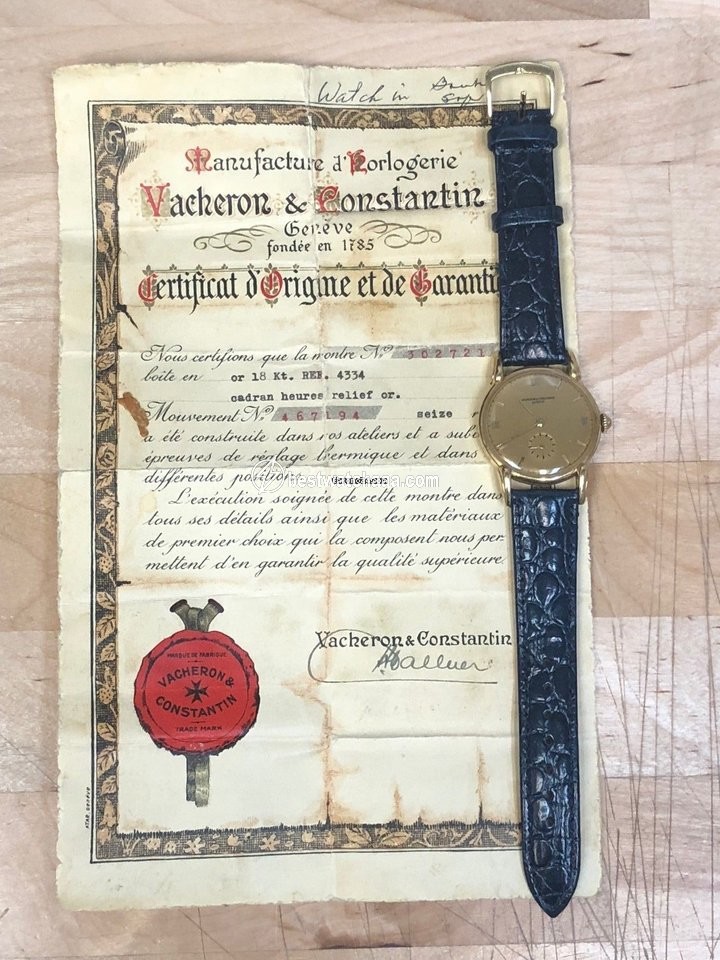 Watch in
Manufacture d'Horlogerie
Vacheron & Constantin
Genève
fondée en 1785
Certificat d'Origine et de Garanti
Nous certifions que la montre No 302721
boîte en or 18 Kt. REF. 4334
cadran heures relief or.
Mouvement No 467194 seize r
a été construite dans nos ateliers et a subi
épreuves de réglage thermique et dans
différentes positions
L'exécution soignée de cette montre dans
tous ses détails ainsi que les matériaux
de premier choix qui la composent nous per
mettent d'en garantir la qualité supérieure
Vacheron & Constantin
MARQUE DE FABRIQUE
VACHERON &
CONSTANTIN
TRADE MARK